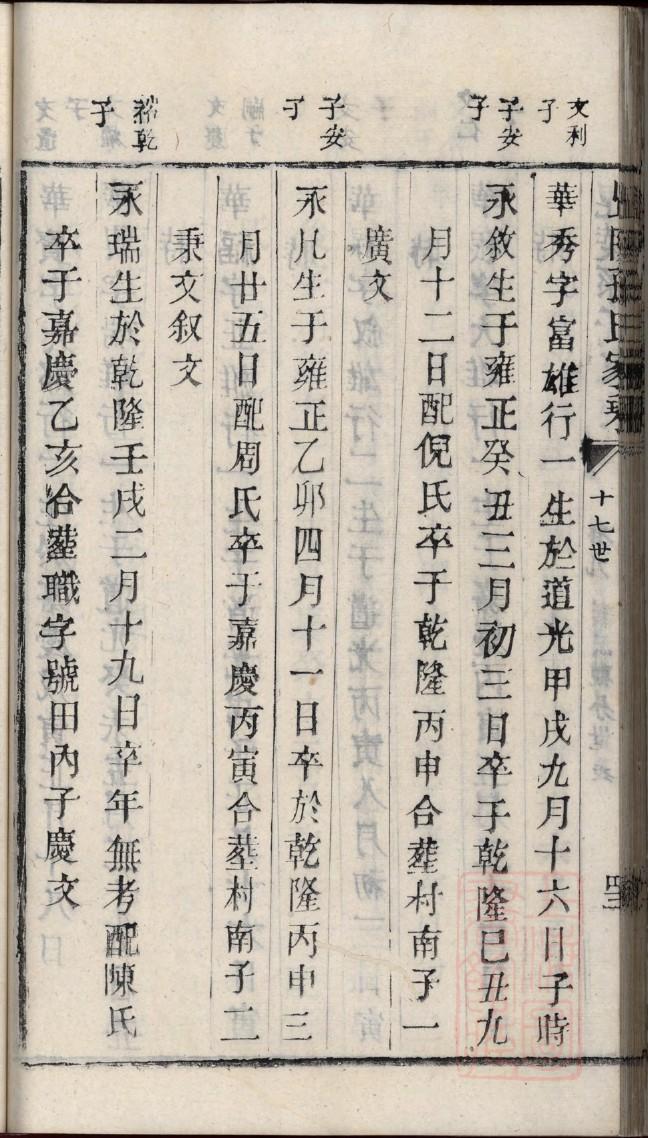 孫氏家乘
十七世
文利子
華秀字富雄行一生於道光甲戌九月十六日子時
子安子
永敘生于雍正癸丑三月初三日卒于乾隆巳丑九
月十二日配倪氏卒于乾隆丙申合塟村南子一
廣文
子安子
永凡生于雍正乙卯四月十一日卒於乾隆丙申三
月廿五日配周氏卒于嘉慶丙寅合塟村南子二
秉文叙文
乾子
永瑞生於乾隆壬戌二月十九日卒年無考配陳氏
卒于嘉慶乙亥合塟職字號田內子慶文